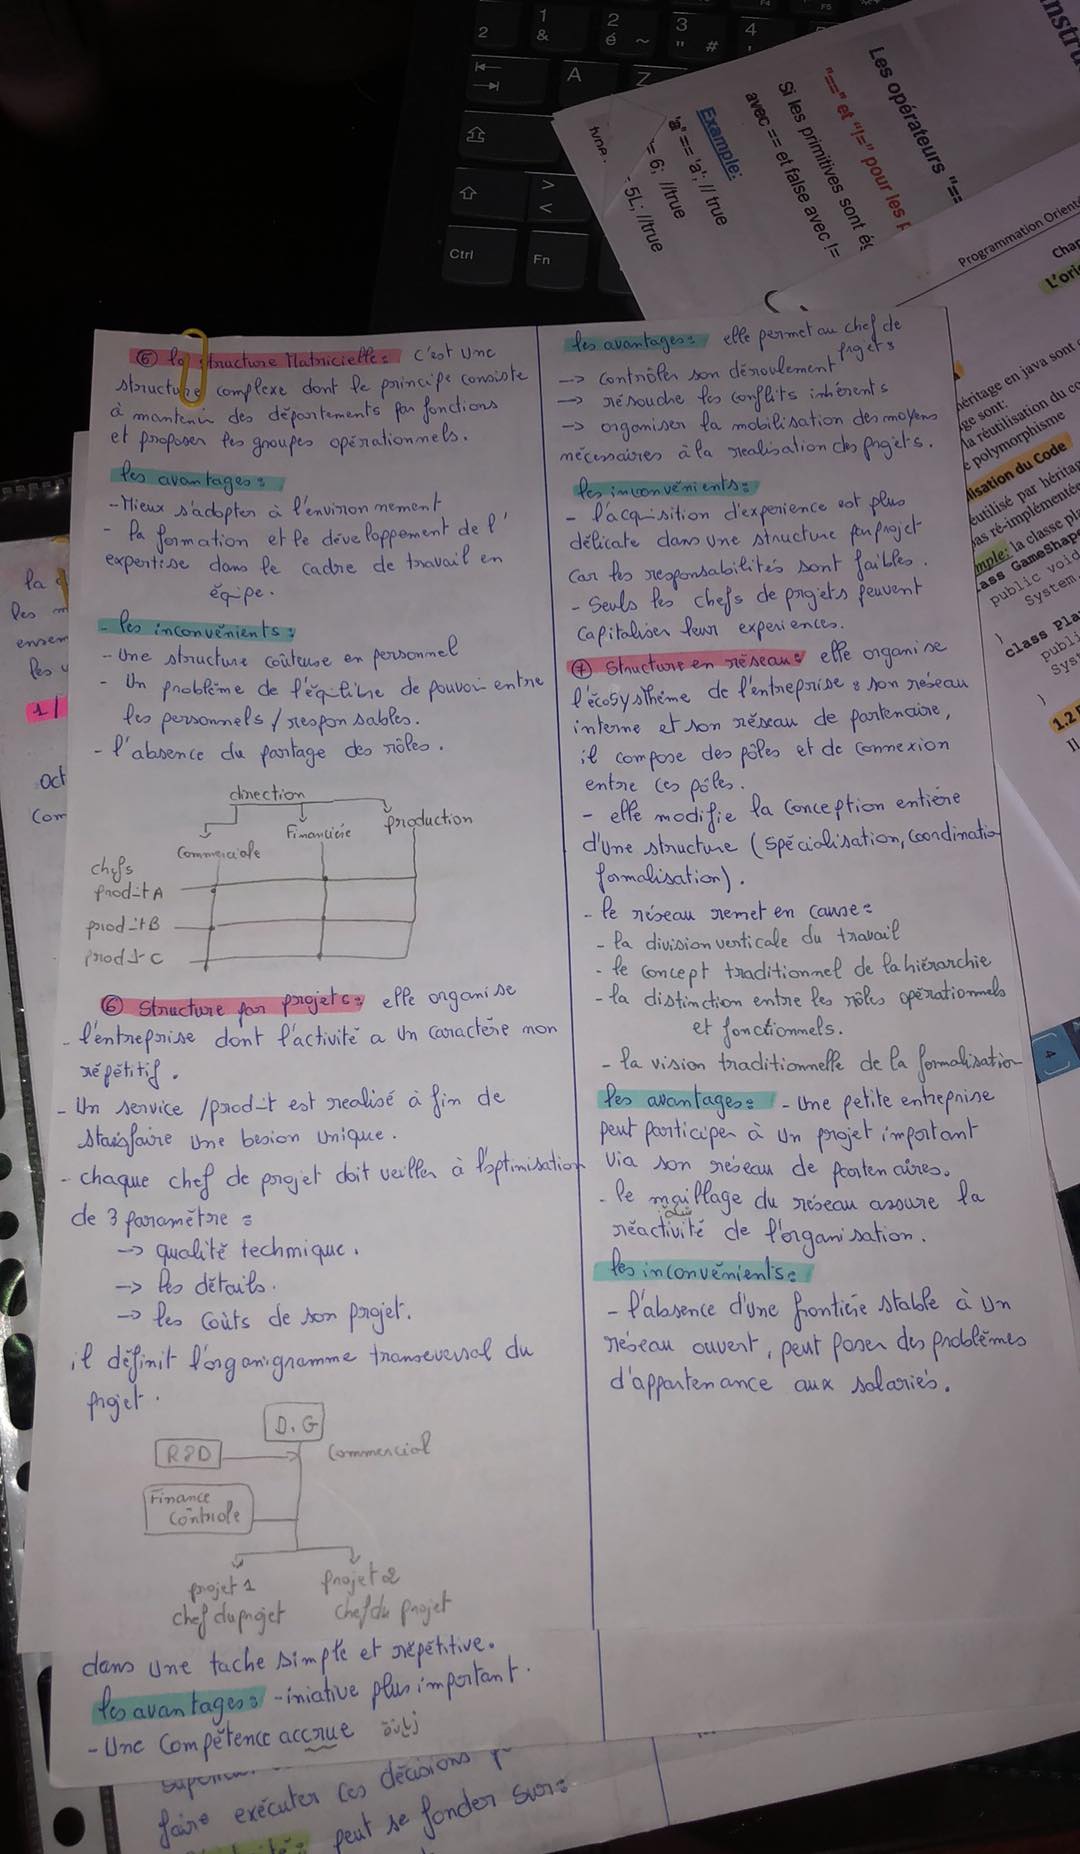 ⑥ la structure Matricielle: c'est une
structure complexe dont le principe consiste
à mantenir des départements par fonctions
et proposer les groupes opérationnels.
les avantages:
- Mieux s'adopter à l'environnement
- la formation et le développement de l'
expertise dans le cadre de travail en
éqipe.
- les inconvénients:
- Une structure coûteuse en personnel
- Un problème de l'éqilibre de pouvoir entre
les personnels / responsables.
- l'absence du partage des rôles.
direction
Commerciale
Financière
production
chefs
produit A
produit B
produit C
⑥ Structure par projets: elle organise
- l'entreprise dont l'activité a un caractère non
répétitif.
- Un service / produit est realisé à fin de
staisfaire une besion unique.
- chaque chef de projet doit veiller à l'optimisation
de 3 paramètre:
→ qualité technique.
→ les détails.
→ les coûts de son projet.
il définit l'organigramme transeversal du
projet.
D.G
R&D
Commercial
Finance
Contrôle
projet 1
chef du projet
projet 2
chef du projet
dans une tache simple et répétitive.
les avantages: - iniative plus important.
- Une Compétence accrue
les avantages: elle permet au chef de
projet:
→ contrôler son déroulement
→ résoudre les conflits inhérents
→ organiser la mobilisation des moyens
nécessaires à la realisation des projets.
les inconvénients:
- l'acquisition d'experience est plus
délicate dans une structure par projet
car les responsabilités sont faibles.
- Seuls les chefs de projets peuvent
capitaliser leur experiences.
⑦ Structure en réseau: elle organise
l'écosysthème de l'entreprise: son réseau
interne et son réseau de partenaire,
il compose des pôles et de connexion
entre ces pôles.
- elle modifie la conception entière
d'une structure (spécialisation, coordination
formalisation).
- le réseau remet en cause:
- la division verticale du travail
- le concept traditionnel de la hiérarchie
- la distinction entre les rôles opérationnels
et fonctionnels.
- la vision traditionnelle de la formalisation
les avantages: - Une petite entreprise
peut participer à un projet important
via son réseau de partenaires.
- le maillage du réseau assure la
réactivité de l'organisation.
les inconvénients:
- l'absence d'une frontière stable à un
réseau ouvert, peut poser des problèmes
d'appartenance aux salariés.
faire exécuter ces décisions
peut se fonder sur:
la
les
ensem
les
1/
Oct
Com
Les opérateurs "==
"==" et "!=" pour les
Si les primitives sont
avec == et false avec !=
Example:
'a' == 'a'; // true
= 6; //true
5L; //true
Programmation Orient
L'ori
héritage en java sont
ge sont:
la réutilisation du co
e polymorphisme
lisation du Code
éutilisé par héritag
pas ré-implémenté
mple: la classe pla
ass GameShape
public void
System.
}
class Pla
publi
Syst
}
1.2
Il
4
2
1
&
2
é
~
3
"
#
4
'
A
Z
>
<
Ctrl
Fn
F4
F5